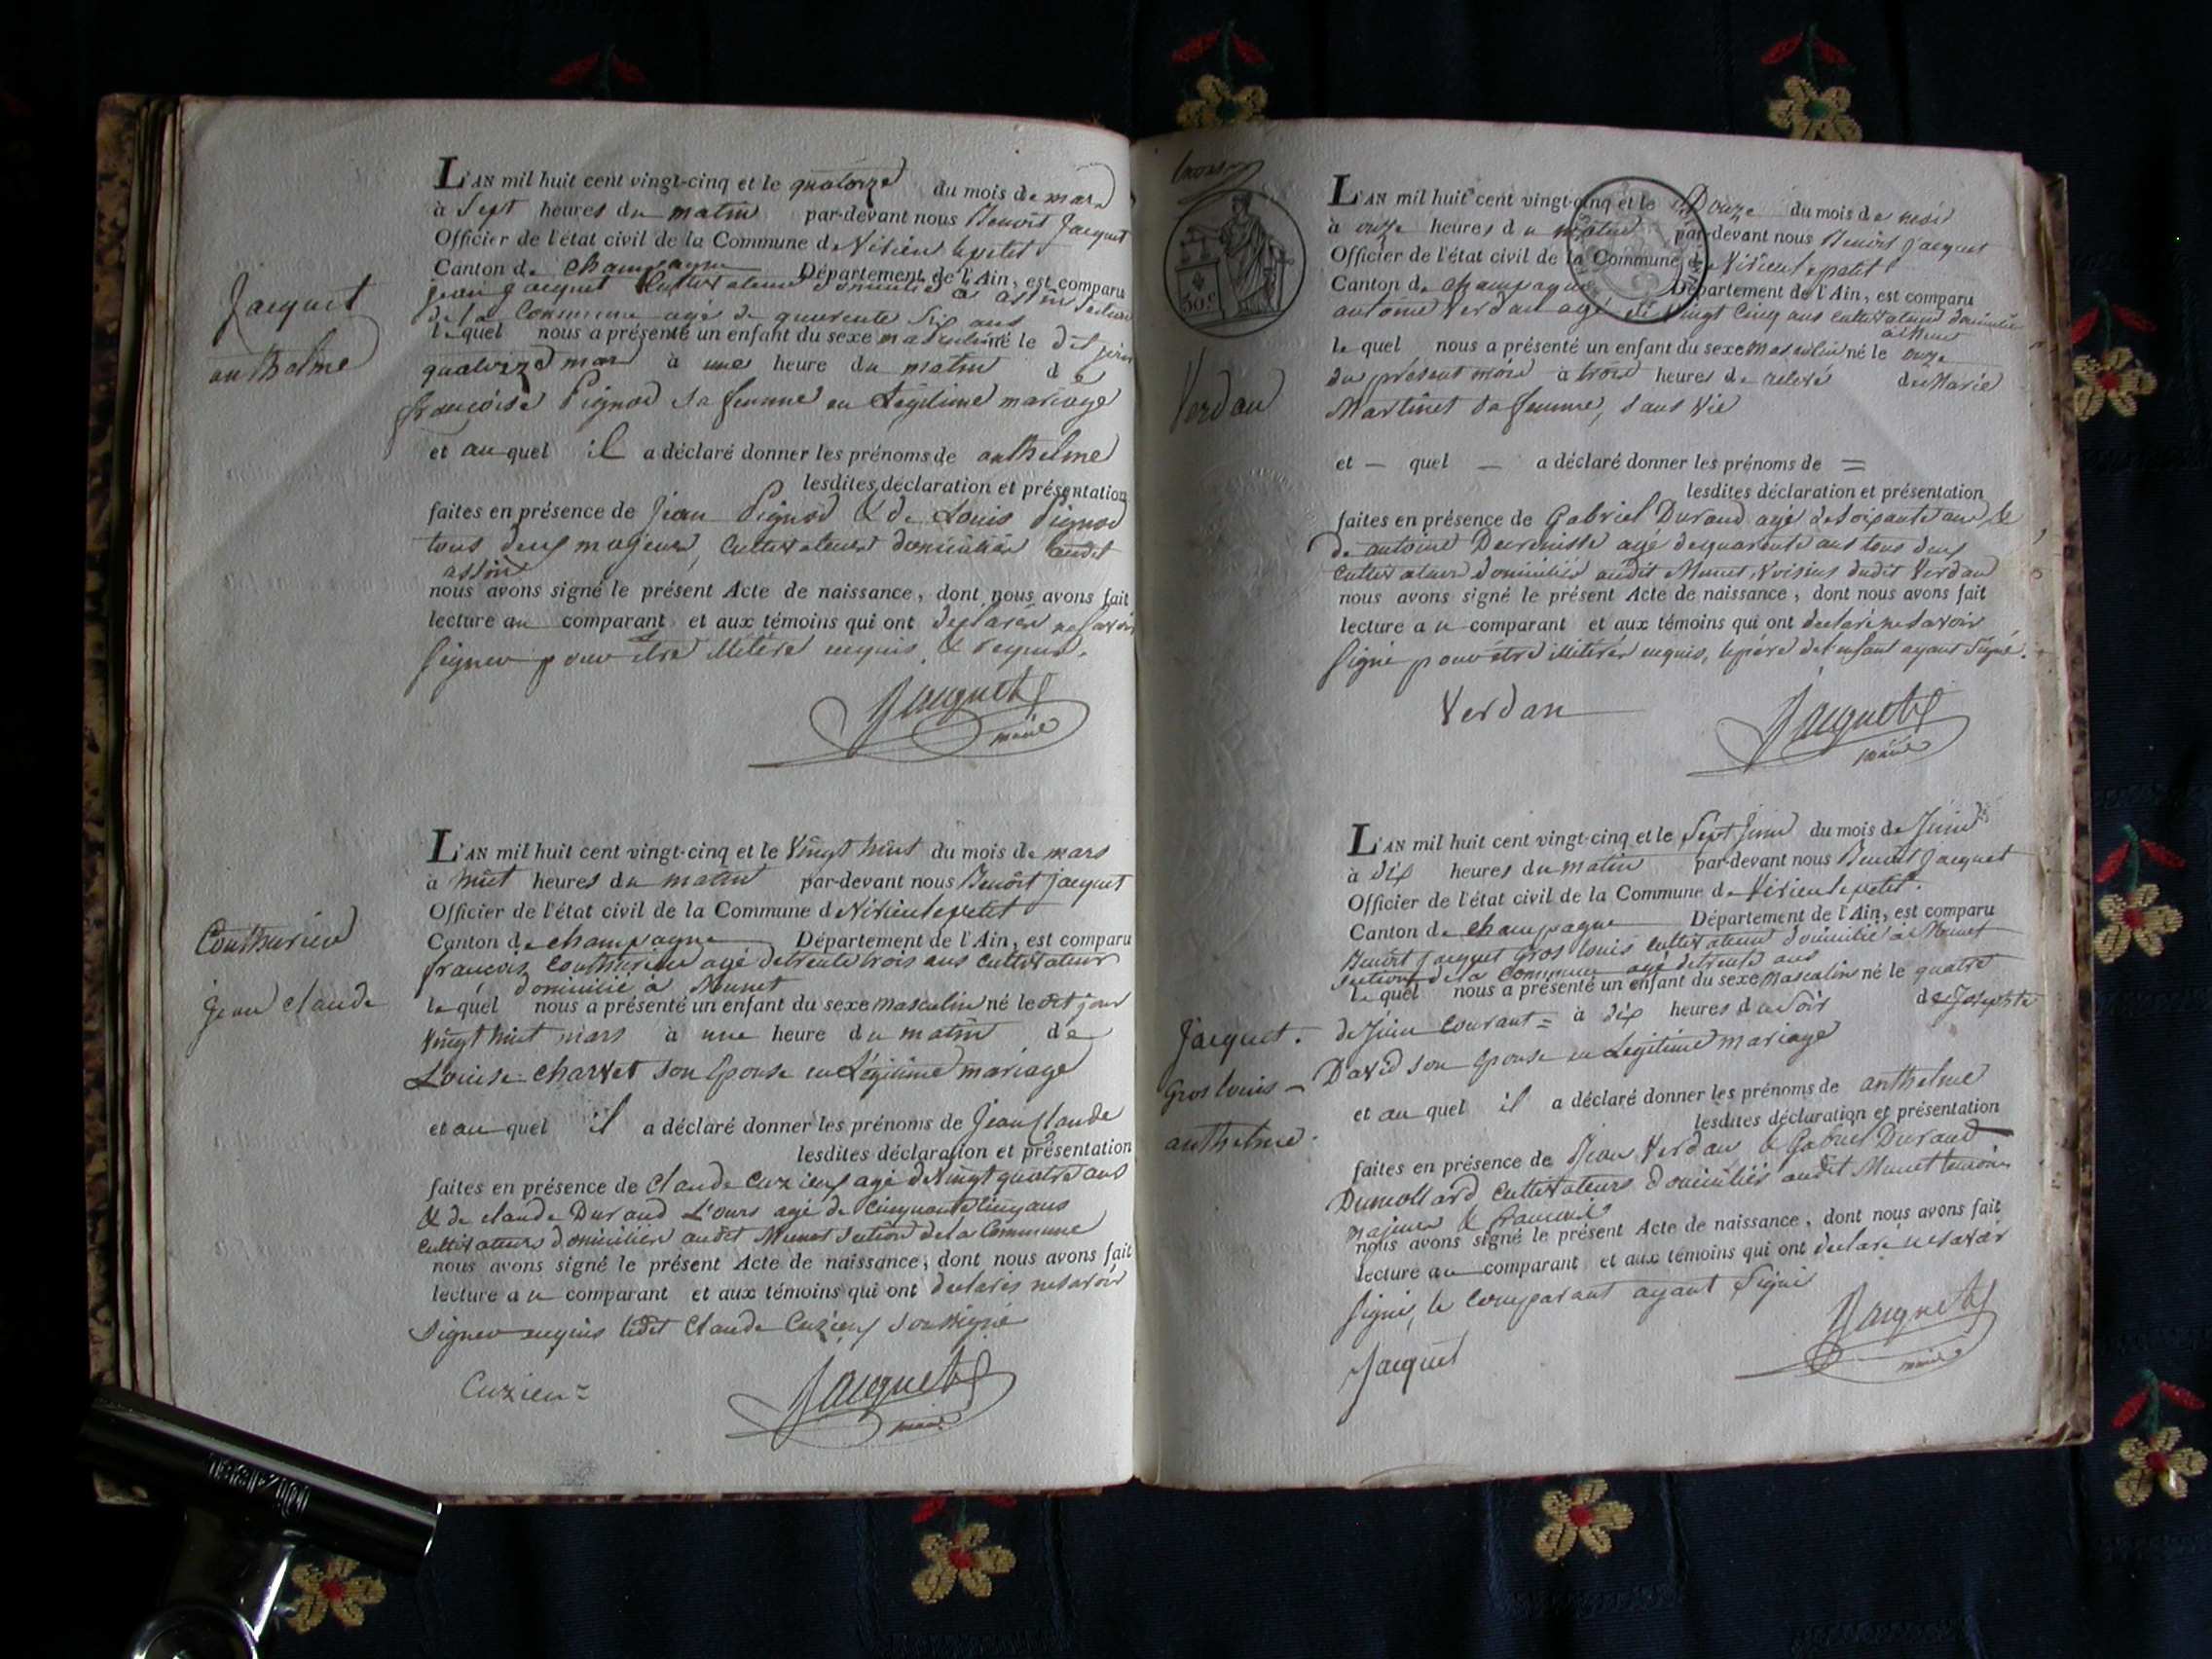 Jacquet
anthelme
L'AN mil huit cent vingt-cinq et le quatorze du mois de mars
à Sept heures du matin par-devant nous Benoit Jacquet
Officier de l'état civil de la Commune de Virieu le petit
Canton de champagne Département de l'Ain, est comparu
jean Jacquet Cultivateur domicilié à assin section
de la Commune agé de quarente Six ans
lequel nous a présenté un enfant du sexe masculin né le dit jour
quatorze mars à une heure du matin de
françoise Pignod sa femme en Légitime mariage
et auquel il a déclaré donner les prénoms de anthelme
lesdites déclaration et présentation
faites en présence de Jean Pignod & de Louis Pignod
tous deux majeurs, Cultivateurs domiciliés audit
assin
nous avons signé le présent Acte de naissance, dont nous avons fait
lecture au comparant et aux témoins qui ont déclarés ne savoir
Signer pour être illitéré enquis & requis.
Jacquet
maire
Couthurieu
jean claude
L'AN mil huit cent vingt-cinq et le Vingt huit du mois de mars
à huit heures du matin par-devant nous Benoit jacquet
Officier de l'état civil de la Commune de Virieu le petit
Canton de champagne Département de l'Ain, est comparu
françois Couthurieu agé de trente trois ans cultivateur
domicilié à Munet
lequel nous a présenté un enfant du sexe masculin né le dit jour
Vingt huit mars à une heure du matin de
Louise charvet son Epouse en Légitime mariage
et auquel il a déclaré donner les prénoms de Jean Claude
lesdites déclaration et présentation
faites en présence de Claude Cuzieux agé de Vingt quatre ans
& de claude Durand L'ours agé de Cinquante Cinq ans
Cultivateurs domiciliés audit Munet section de la Commune
nous avons signé le présent Acte de naissance, dont nous avons fait
lecture au comparant et aux témoins qui ont declarés ne savoir
Signer enquis ledit Claude Cuzieux soussigné
Cuzieu
Jacquet
maire
30 c.
Verdan
L'AN mil huit cent vingt-cinq et le Douze du mois de mai
à onze heures du matin par-devant nous Benoit Jacquet
Officier de l'état civil de la Commune de Virieu le petit
Canton de champagne Département de l'Ain, est comparu
antoine Verdan agé de Vingt Cinq ans cultivateur domicilié
à Munet
lequel nous a présenté un enfant du sexe masculin né le onze
du présent mois à trois heures de relevé de Marie
Martinet sa femme, sans Vie
et — quel — a déclaré donner les prénoms de =
lesdites déclaration et présentation
faites en présence de Gabriel Durand agé de soixante ans &
de antoine agé de quarante ans tous deux
cultivateurs domiciliés audit Munet, Voisins dudit Verdan
nous avons signé le présent Acte de naissance, dont nous avons fait
lecture au comparant et aux témoins qui ont declaré ne savoir
Signé pour être illitérés enquis, le père de l'enfant ayant Signé.
Verdan
Jacquet
maire
Jacquet.
Gros louis —
anthelme.
L'AN mil huit cent vingt-cinq et le Sept Juin du mois de Juin
à dix heures du matin par-devant nous Benoit Jacquet
Officier de l'état civil de la Commune de Virieu le petit.
Canton de champagne Département de l'Ain, est comparu
Benoit Jacquet Gros louis Cultivateur domicilié à Munet
section de la Commune agé de trente ans
lequel nous a présenté un enfant du sexe masculin né le quatre
de Juin Courant = à dix heures du Soir de Josephte
David son Epouse en Légitime mariage
et auquel il a déclaré donner les prénoms de anthelme
lesdites déclaration et présentation
faites en présence de Jean Verdan & Gabriel Durand
Dumollard Cultivateurs domiciliés audit Munet temoins
majeurs & francais
nous avons signé le présent Acte de naissance, dont nous avons fait
lecture au comparant et aux témoins qui ont declaré ne savoir
Signé, le Comparant ayant Signé
Jacquet
Jacquet
maire